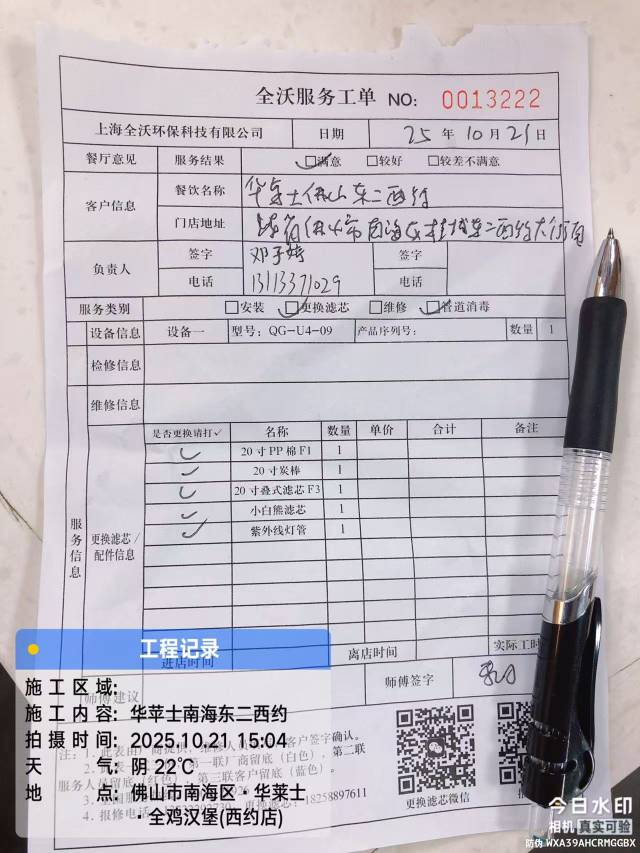 全沃服务工单 NO: 0013222
上海全沃环保科技有限公司 日期 25 年 10 月 21 日
餐厅意见 服务结果 ☑满意 □较好 □较差不满意
客户信息 餐饮名称 华莱士佛山东二西约
门店地址 佛山市南海区桂城东二西约大街
负责人 签字 签字
电话 13113371029 电话
服务类别 □安装 ☑更换滤芯 □维修 ☑管道消毒
设备信息 设备一 型号: QG-U4-09 产品序列号: 数量 1
检修信息
维修信息
服务信息
更换滤芯/配件信息
是否更换请打✓ 名称 数量 单价 合计 备注
✓ 20寸PP棉F1 1
✓ 20寸炭棒 1
✓ 20寸叠式滤芯F3 1
✓ 小白熊滤芯 1
✓ 紫外线灯管 1
进店时间 离店时间 实际工时
师傅建议 师傅签字
第一联厂商留底(白色)
第三联客户留底(蓝色)。
签字确认。
第二联
18258897611
更换滤芯微信
工程记录
施工区域:
施工内容: 华苹士南海东二西约
拍摄时间: 2025.10.21 15:04
天气: 阴 22℃
地点: 佛山市南海区·华莱士
·全鸡汉堡(西约店)
今日水印
相机 真实可验
防伪 WXA39AHCRMGGBX